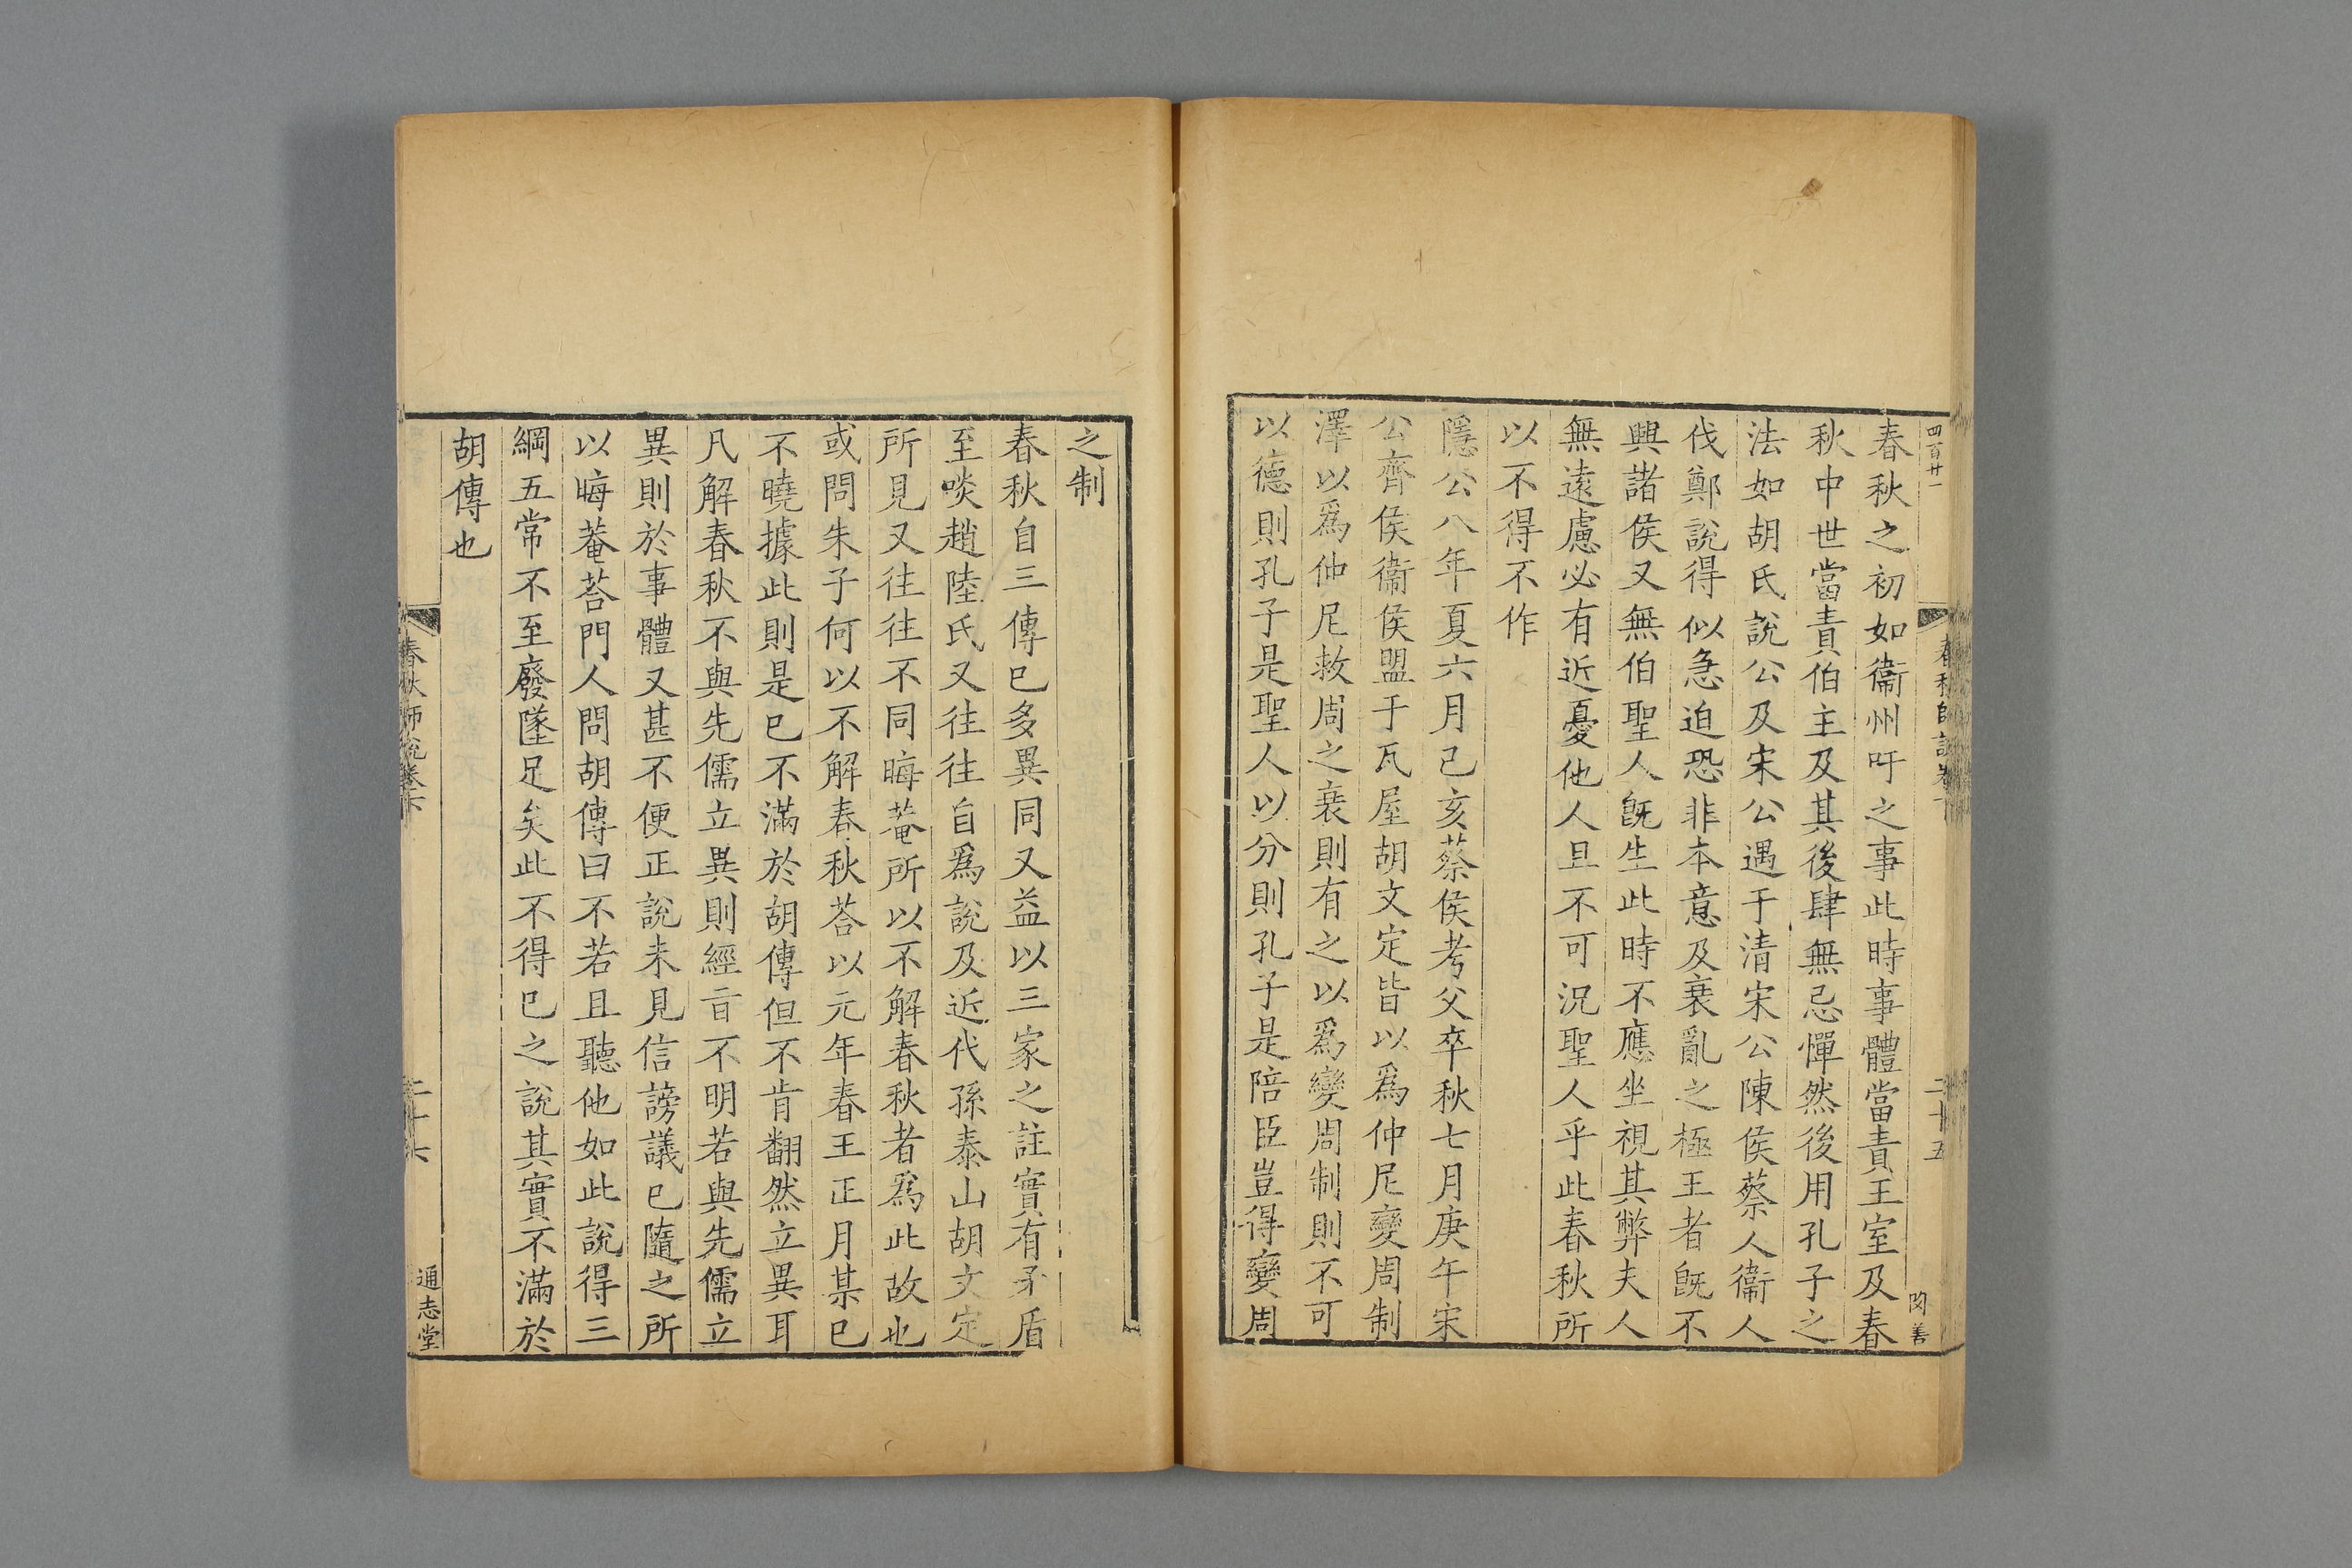 四百廿一
春秋師說卷下
二十五
閔善
春秋之初如衞州吁之事此時事體當責王室及春
秋中世當責伯主及其後肆無忌憚然後用孔子之
法如胡氏說公及宋公遇于清宋公陳侯蔡人衞人
伐鄭說得似急迫恐非本意及衰亂之極王者旣不
興諸侯又無伯聖人旣生此時不應坐視其弊夫人
無遠慮必有近憂他人且不可況聖人乎此春秋所
以不得不作
隱公八年夏六月己亥蔡侯考父卒秋七月庚午宋
公齊侯衞侯盟于瓦屋胡文定皆以爲仲尼變周制
澤以爲仲尼救周之衰則有之以爲變周制則不可
以德則孔子是聖人以分則孔子是陪臣豈得變周
之制
春秋自三傳已多異同又益以三家之註實有矛盾
至啖趙陸氏又往往自爲說及近代孫泰山胡文定
所見又往往不同晦菴所以不解春秋者爲此故也
或問朱子何以不解春秋荅以元年春王正月某已
不曉據此則是已不滿於胡傳但不肯翻然立異耳
凡解春秋不與先儒立異則經㫖不明若與先儒立
異則於事體又甚不便正說未見信謗議已隨之所
以晦菴荅門人問胡傳曰不若且聽他如此說得三
綱五常不至廢墜足矣此不得已之說其實不滿於
胡傳也
春秋師說卷下
二十六
通志堂